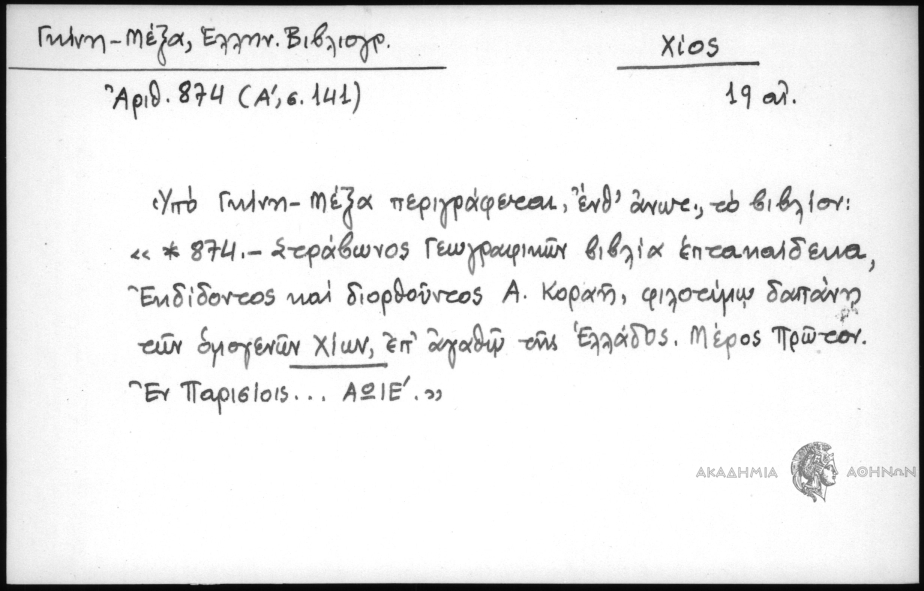 Γκίνη-Μέξα, Ἑλλην. Βιβλιογρ.
Χίος
Ἀριθ. 874 (Α', σ. 141)
19 αἰ.
Ὑπό Γκίνη-Μέξα περιγράφεται, ἔνθ' ἀνωτ., τό βιβλίον:
«*874.- Στράβωνος Γεωγραφικῶν βιβλία ἑπτακαίδεκα,
Ἐκδίδοντος καί διορθοῦντος Α. Κοραῆ, φιλοτίμῳ δαπάνῃ
τῶν ὁμογενῶν Χίων, ἐπ' ἀγαθῷ τῆς Ἑλλάδος. Μέρος Πρῶτον.
Ἐν Παρισίοις... ΑΩΙΕ'.»
ΑΚΑΔΗΜΙΑ ΑΘΗΝΩΝ